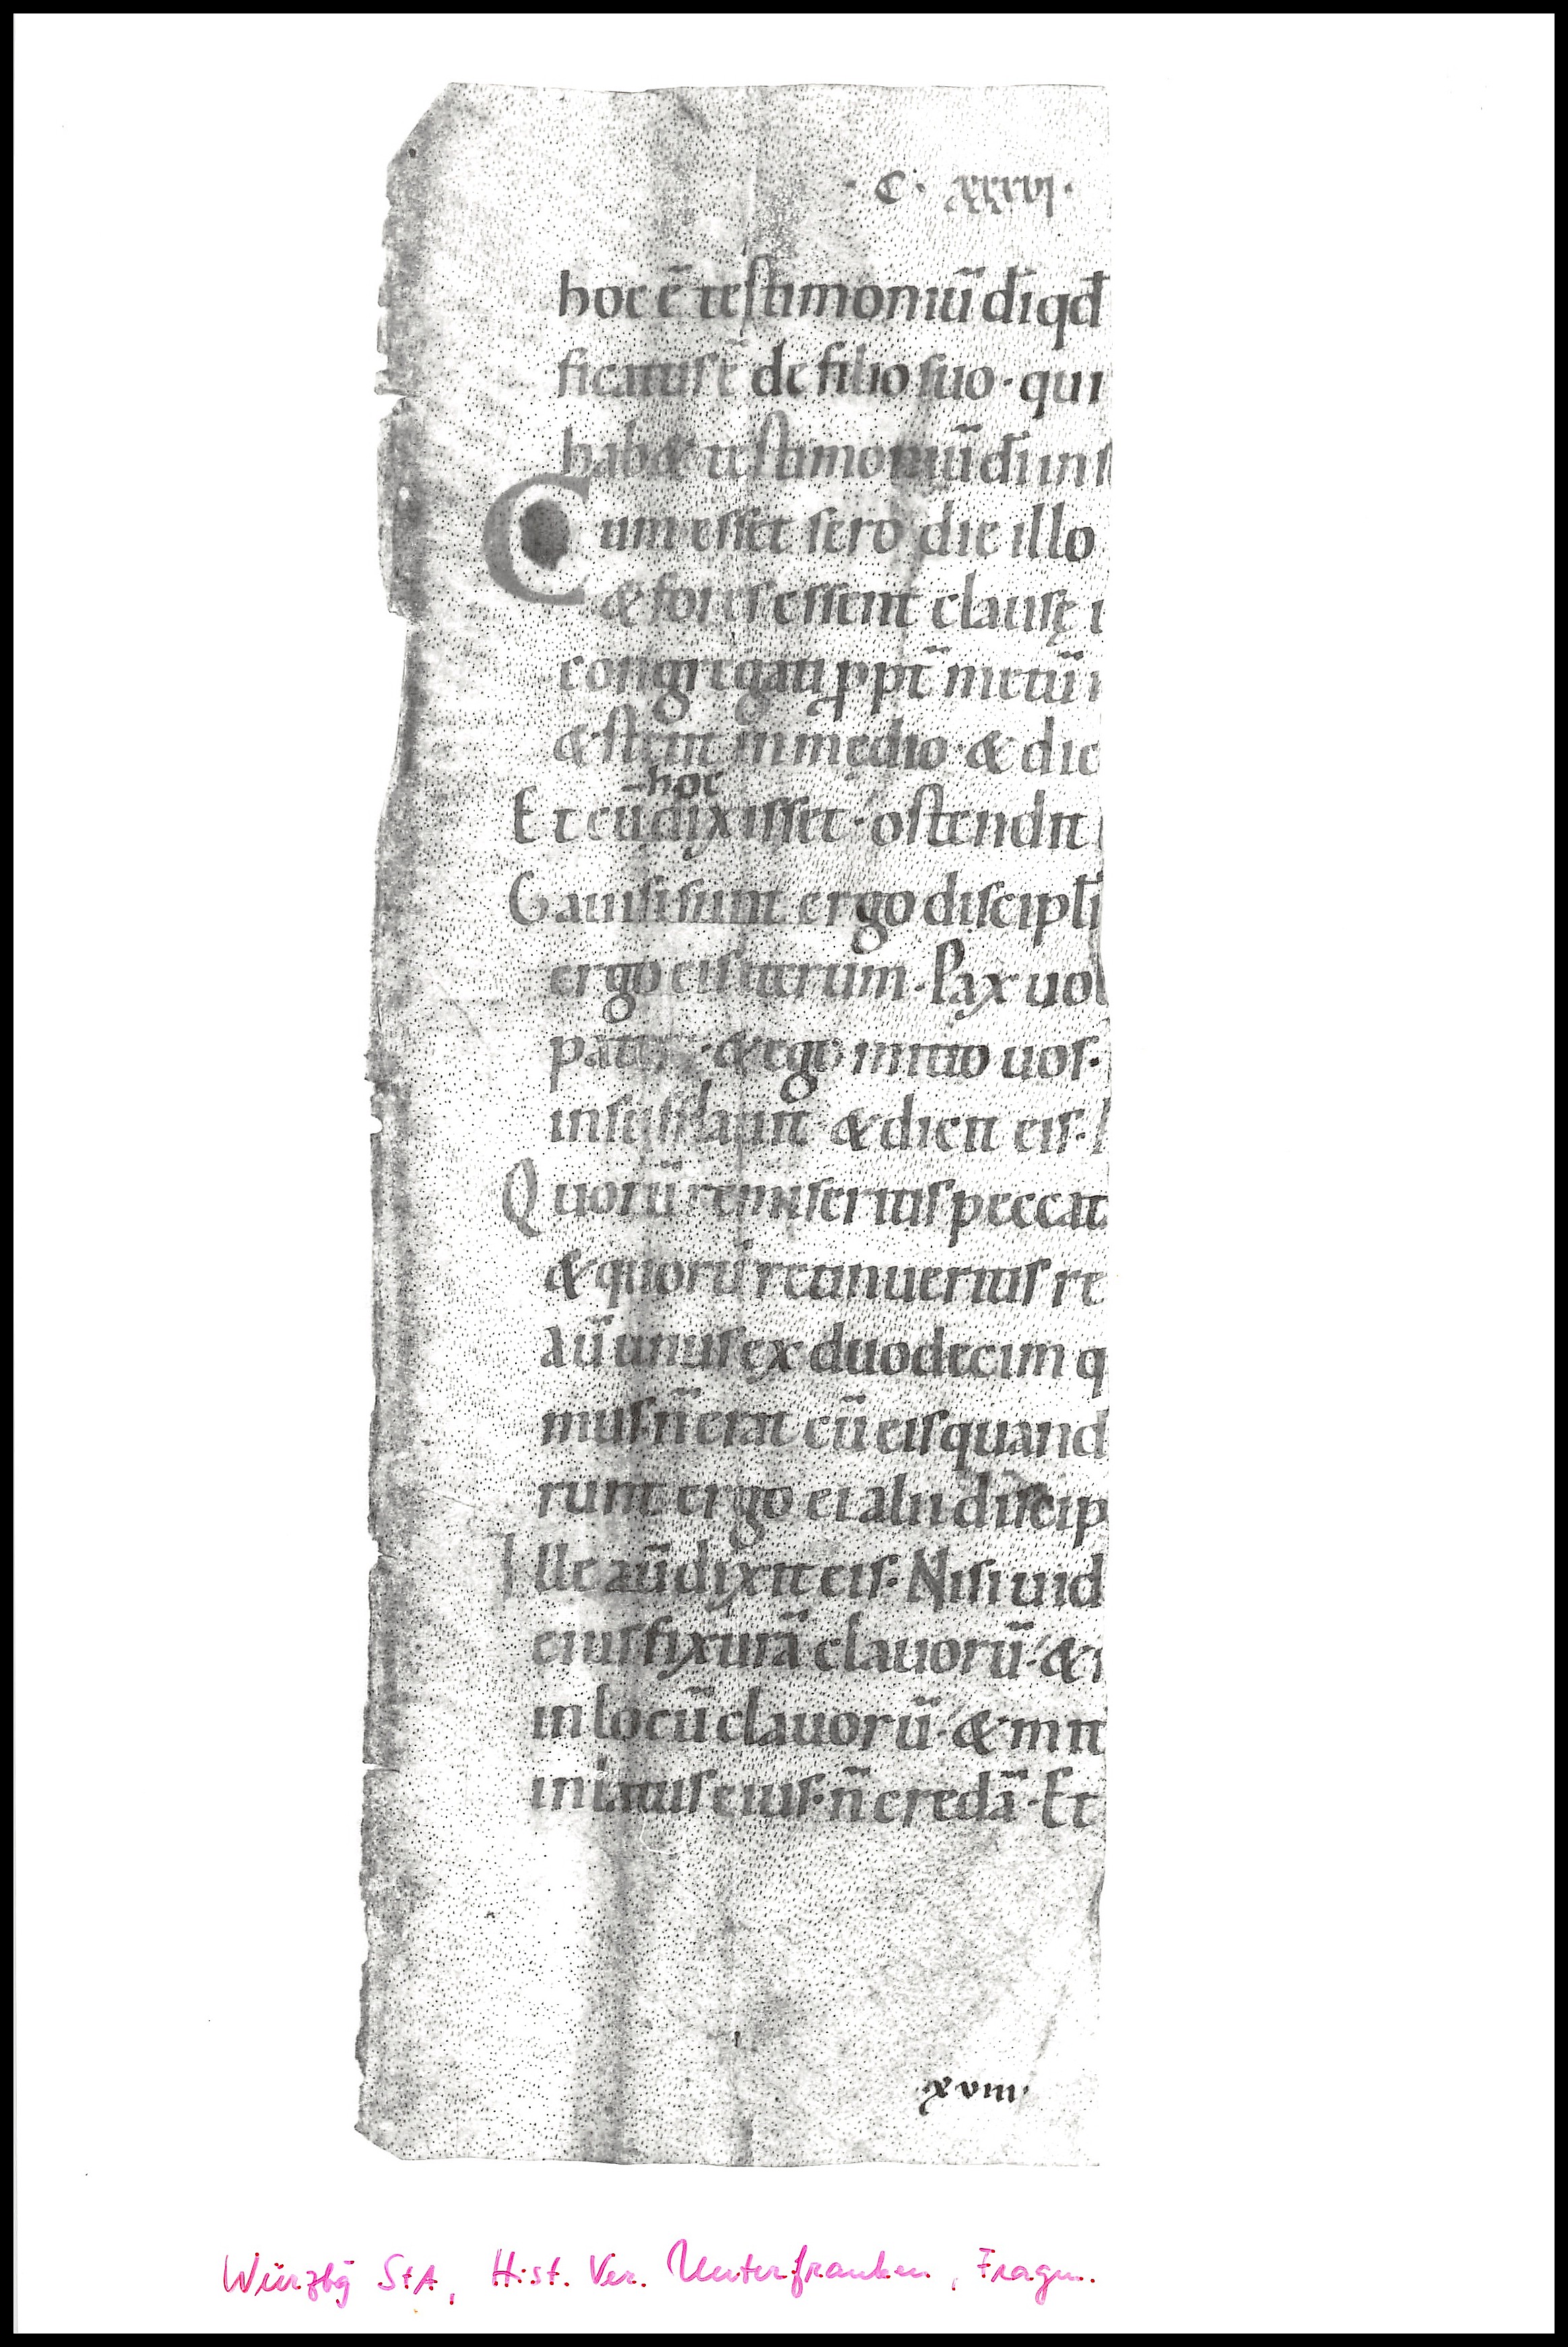 · C · xxxvi ·
hoc ē testimoniū dī qđ
ficatus ē de filio suo · qui
hab& testimoniū dī in
Cum esset sero die illo
& fores essent clausę
congregati ppt̄ metū
& stetit in medio · & dic
hoc
Et cū dixisset · ostendit
Gauisi sunt ergo discipli
ergo eis iterum · Pax uob
pater · & ego mitto uos ·
insufflauit & dicit eis ·
Quorū remiseritis peccat
& quorū retinueritis re
aū unus ex duodecim q
mus · n̄ erat cū eis quand
runt ergo ei alii discip
Ille aū dixit eis · Nisi uid
eius fixurā clauorū · &
in locū clauorū · & mitt
in latus eius · n̄ credā · Et
· xviii ·
Würzbg StA, Hist. Ver. Unterfranken, Fragm.